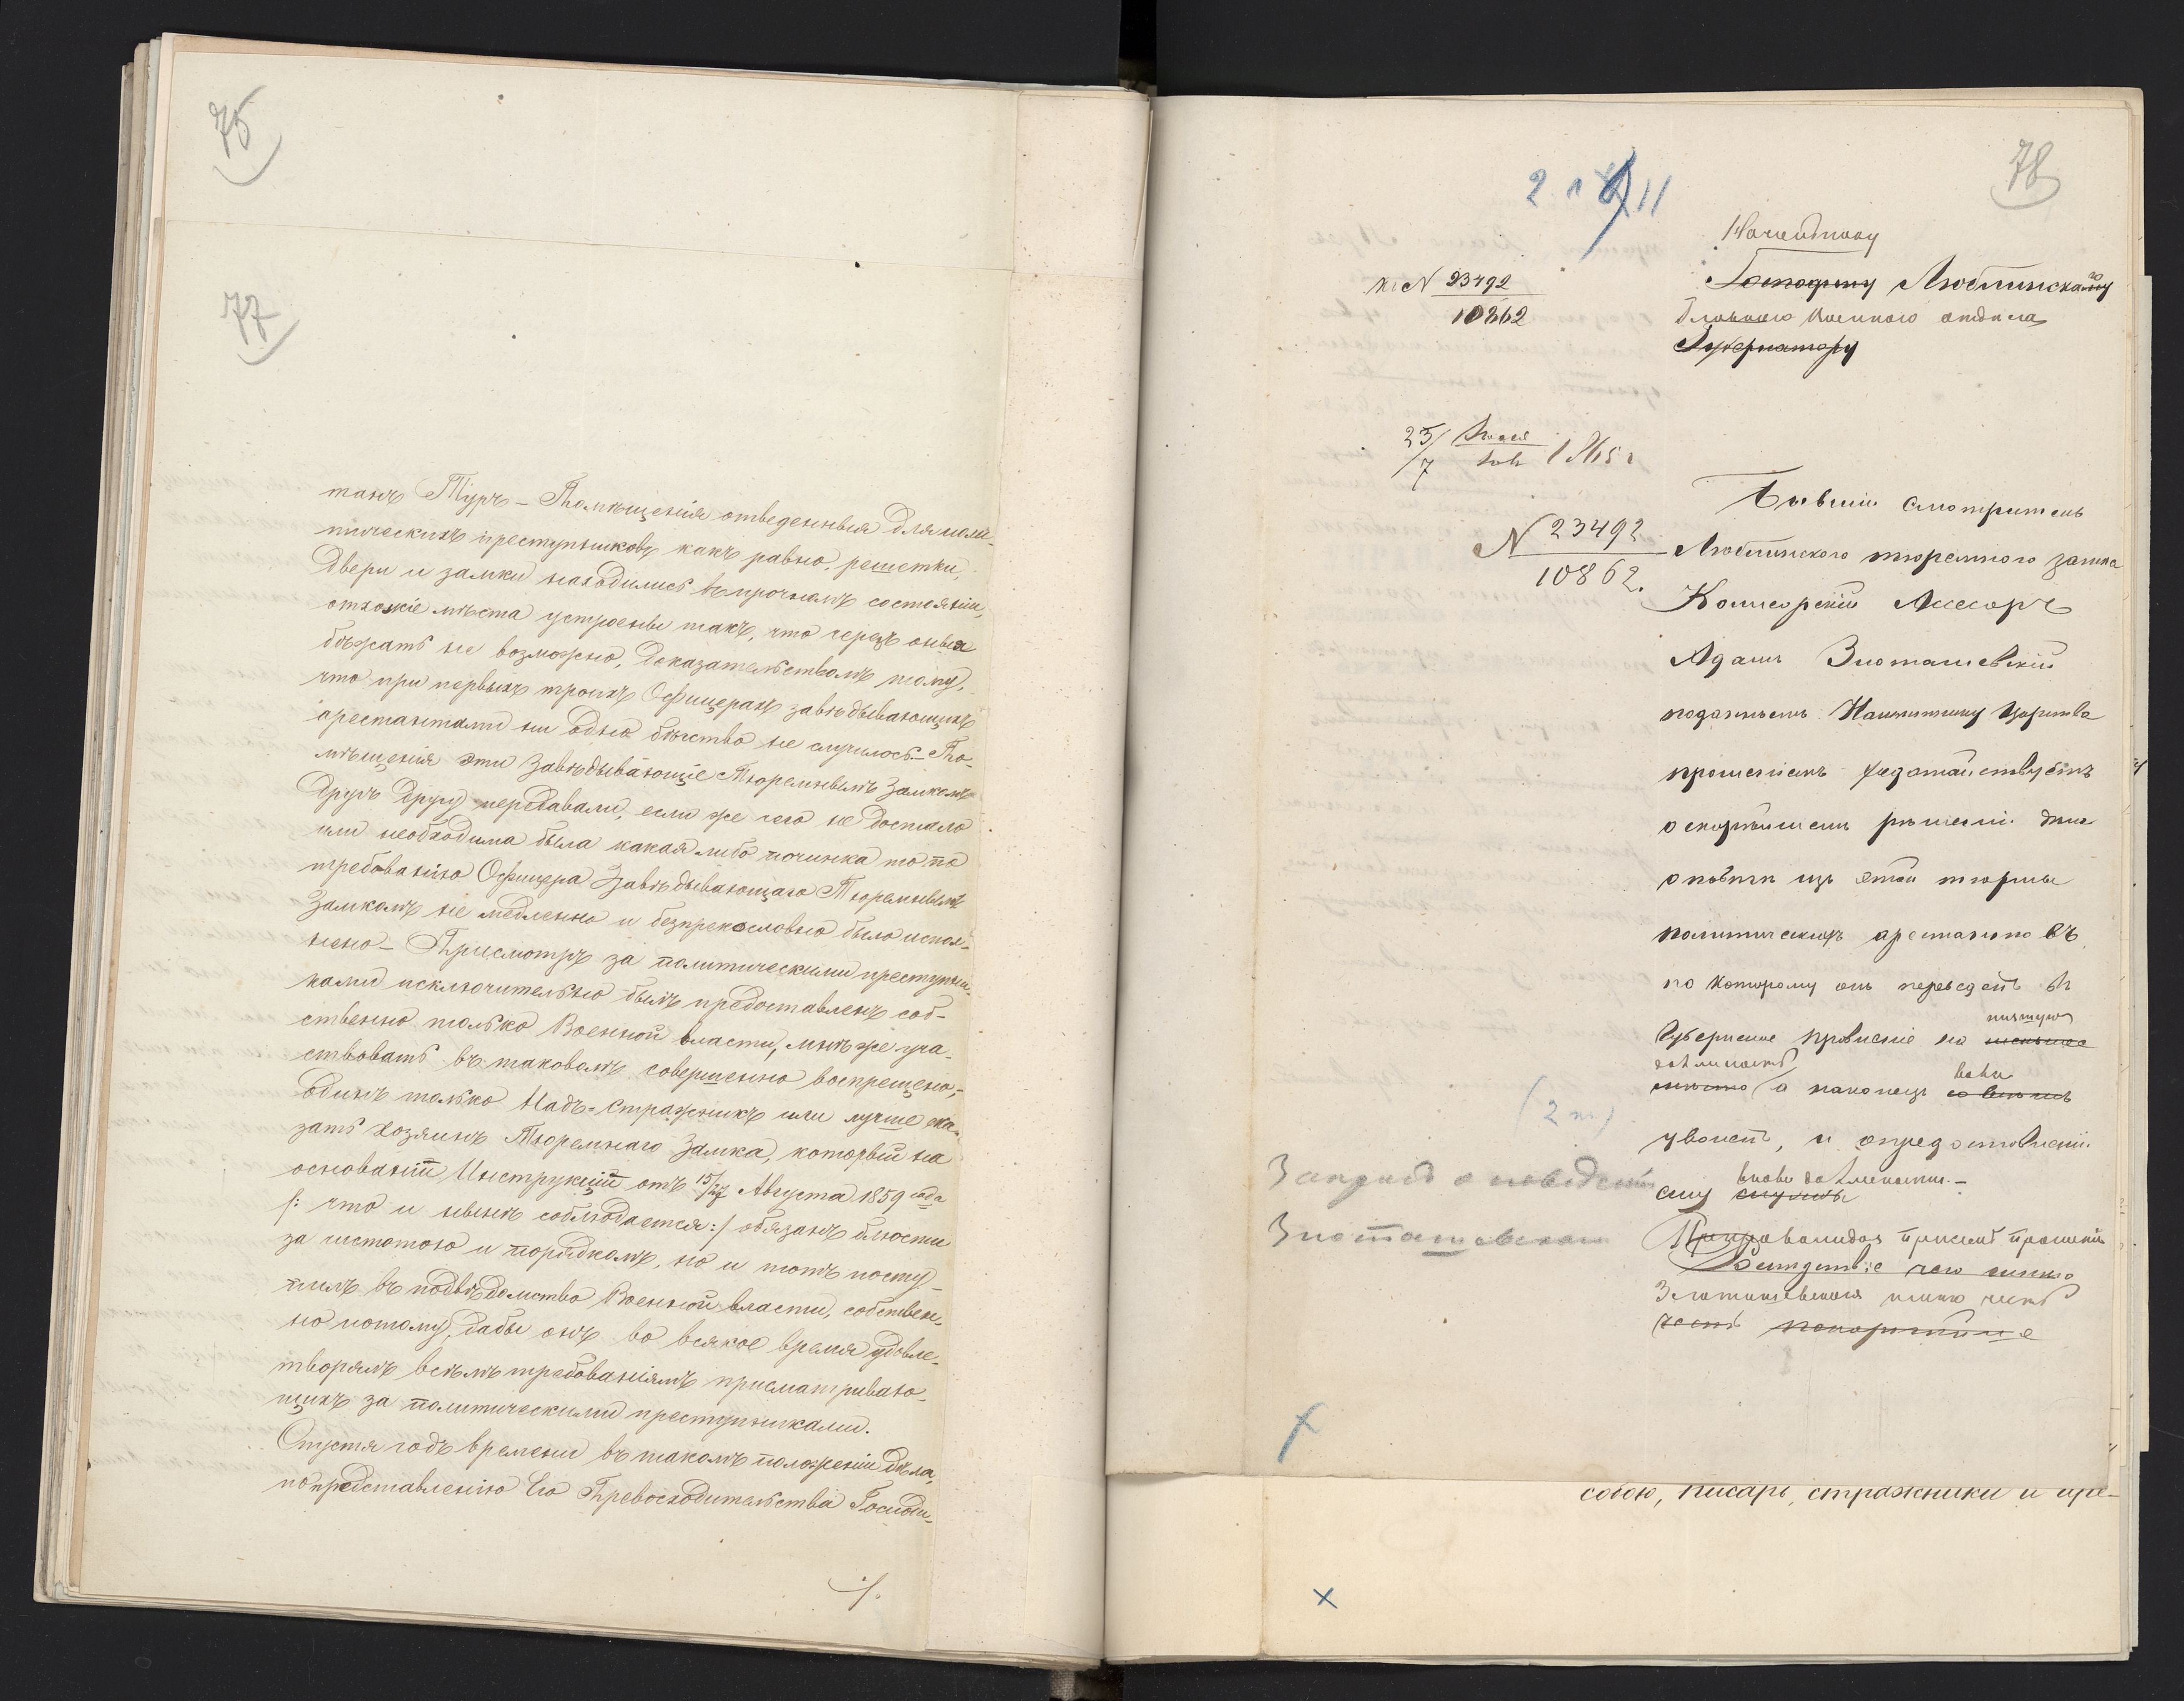 75
77
танъ Туръ – Помѣщенія отведенныя для поли-
тическихъ преступниковъ, какъ равно, решетки,
двери и замки находились въ прочномъ состояніи,
отхожіе мѣста устроены такъ, что черезъ оныя
бѣжать не возможно, доказательствомъ тому,
что при первыхъ троихъ Офицерахъ завѣдывающихъ
арестантами ни одно бѣгство не случилось. – По-
мѣщенія эти завѣдывающіе Тюремнымъ Замкомъ
другъ другу передавали, если же чего не достало
или необходима была какая либо починка то по
требованію Офицера Завѣдывающаго Тюремнымъ
Замкомъ не медленно и безпрекословно было испол-
нено – Присмотръ за политическими преступни-
ками исключительно былъ предоставленъ соб-
ственно только Военной власти, мнѣ же уча-
ствовать въ таковомъ совершенно воспрещено,–
одинъ только Надъ-стражникъ или лучше ска-
зать хозяинъ Тюремнаго Замка, который на
основаніи Инструкціи отъ 15/27 Августа 1859 года
/: что и нынѣ соблюдается:/ обязанъ блюсти
за чистотою и порядкомъ, но и тотъ посту-
пилъ въ подвѣдомство Военной власти, собствен-
но потому, дабы онъ во всякое время удовле-
творялъ всѣмъ требованіямъ присматриваю-
щихъ за политическими преступниками.
Спустя годъ времени въ такомъ положеніи дѣла,
по представленію Его Превосходительства Господи-
./.
78
2 1 11
Начальнику
къ N 23492
10862
Господину Люблинскому
Главнаго Военнаго отдѣла
Губернатору
25/7 1865 г
Бывшій смотритель
N 23492
10862.
Люблинского тюремного замка
Коллежскій Ассесоръ
Адамъ Злоташевскій
поданнымъ Намѣстнику Царства
прошеніемъ ходатайствуетъ
о скорѣйшемъ рѣшеніи дѣла
о побѣгѣ изъ этой тюрьмы
политическихъ арестантовъ
по которому онъ переведенъ въ
пятую
Губернское правленіе на меньшее
должность
мѣсто, а наконецъ вовсе
(2 т)
уволенъ, и о предоставленіи
вновь должности –
ему службы
Запросъ о поведеніи
Злоташевскаго
Препровождая прошеніе
Вслѣдствіе чего
Злоташевскаго имѣю честь
честь покорнѣйше
собою, писарь, стражники и аре-